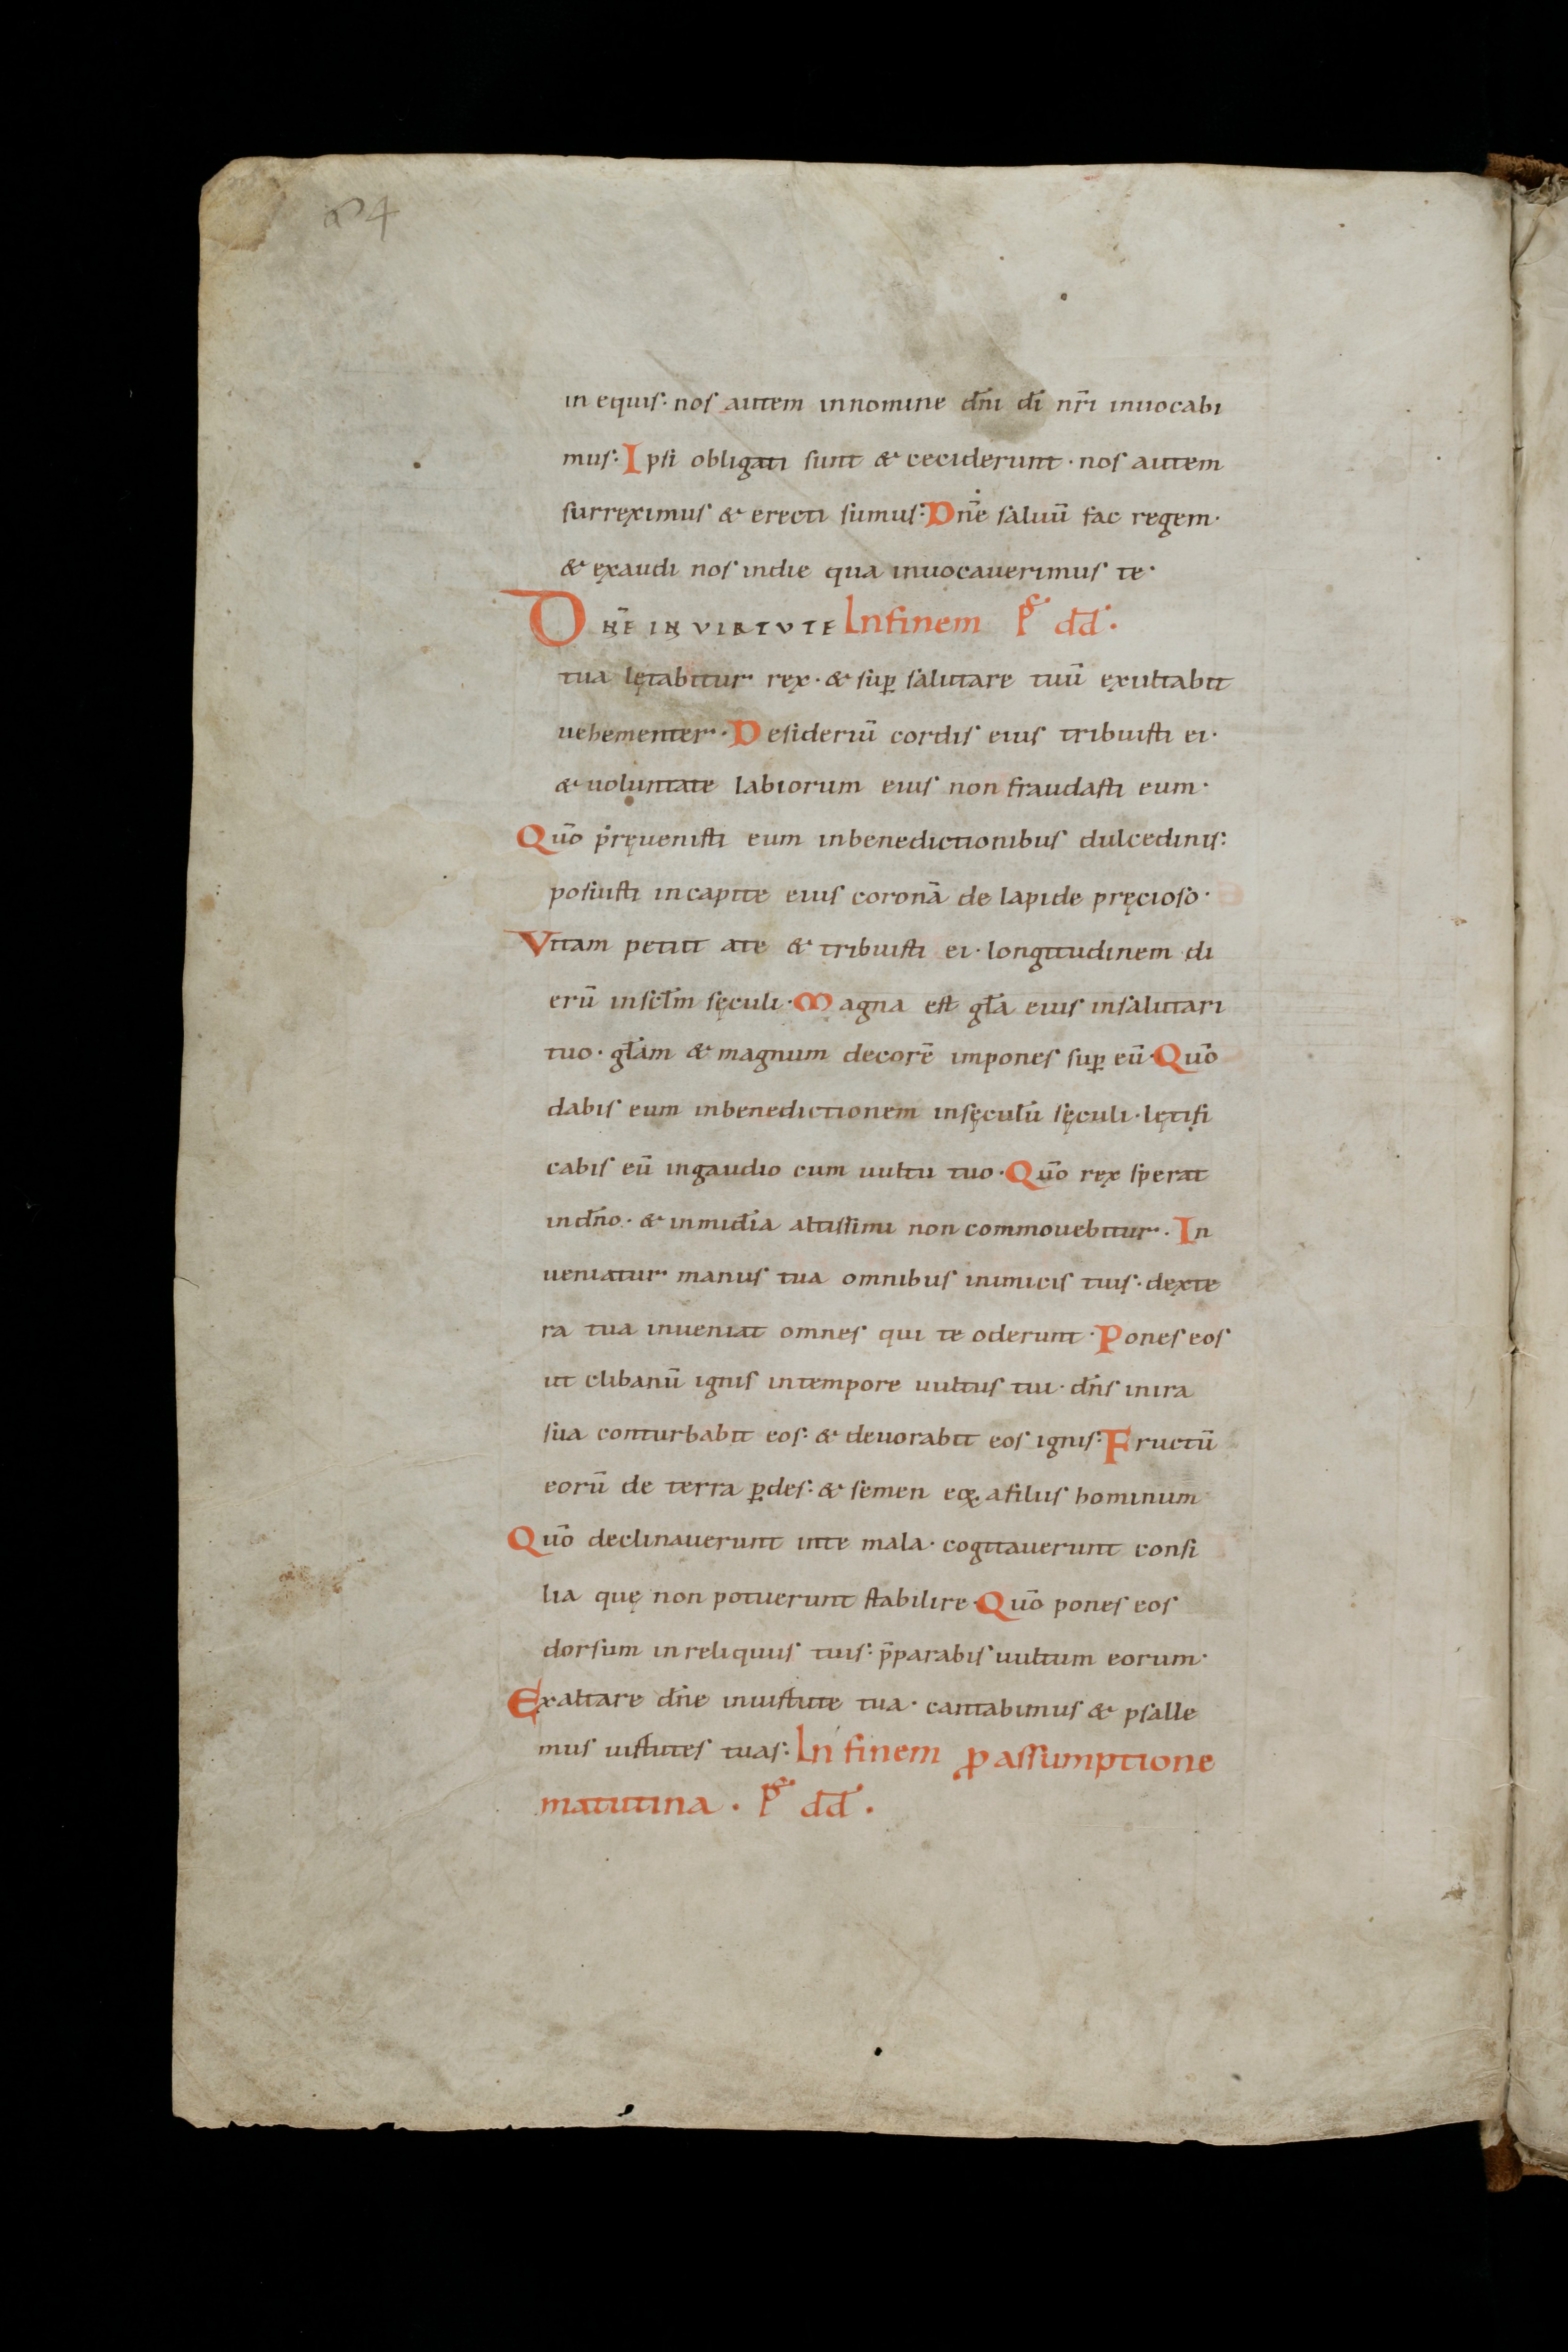 24
in equis· nos autem innomine dn̄i dī nr̄i inuocabi
mus: Ipsi obligati sunt & ceciderunt· nos autem
surreximus & erecti sumus: Dn̄e saluū fac regem·
& exaudi nos indie qua inuocauerimus te·
DN̄E IN VIRTVTE In finem ps̄ dd̄·
tua lętabitur rex· & sup̱ salutare tuū exultabit
uehementer· Desideriū cordis eius tribuisti ei·
& uoluntate labiorum eius non fraudasti eum·
Quō pręuenisti eum inbenedictionibus dulcedinis:
posuisti incapite eius coronā de lapide pręcioso·
Vitam petiit ate & tribuisti ei· longitudinem di
erū insc̄lm sęculi· Magna est gl̄a eius insalutari
tuo· gl̄am & magnum decorē impones sup̱ eū· Quō
dabis eum inbenedictionem insęculū sęculi· lętifi
cabis eū ingaudio cum uultu tuo· Quō rex sperat
indn̄o· & inmid̄ia altissimi non commouebitur· In
ueniatur manus tua omnibus inimicis tuis· dexte
ra tua inueniat omnes qui te oderunt· Pones eos
ut clibanū ignis intempore uultus tui· dn̄s inira
sua conturbabit eos: & deuorabit eos ignis: Fructū
eorū de terra p̱des: & semen eoꝝ afilus hominum
Quō declinauerunt inte mala· cogitauerunt consi
lia quę non potuerunt stabilire· Quō pones eos
dorsum inreliquus tuis: p̄parabis uultum eorum·
Exaltare dn̄e inuirtute tua· cantabimus & psalle
mus uirtutes tuas: In finem ꝓ assumptione
matutina· ps̄ dd̄·